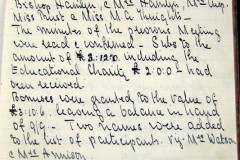 Bishop Hamlyn, & Mrs Hamlyn, Mrs
Miss Trust & Miss M. A. Knights -
The minutes of the previous Meeting
were read & confirmed - Subs to the
amount of £3.12.0 including the
Educational Charity £2.0.0 - had
been received.
Bonuses were granted to the value of
£3.10.6. leaving a balance in hand
of 9/6. - Two names were added
to the list of participants. viz: Mrs Watson
& Mrs Annison.